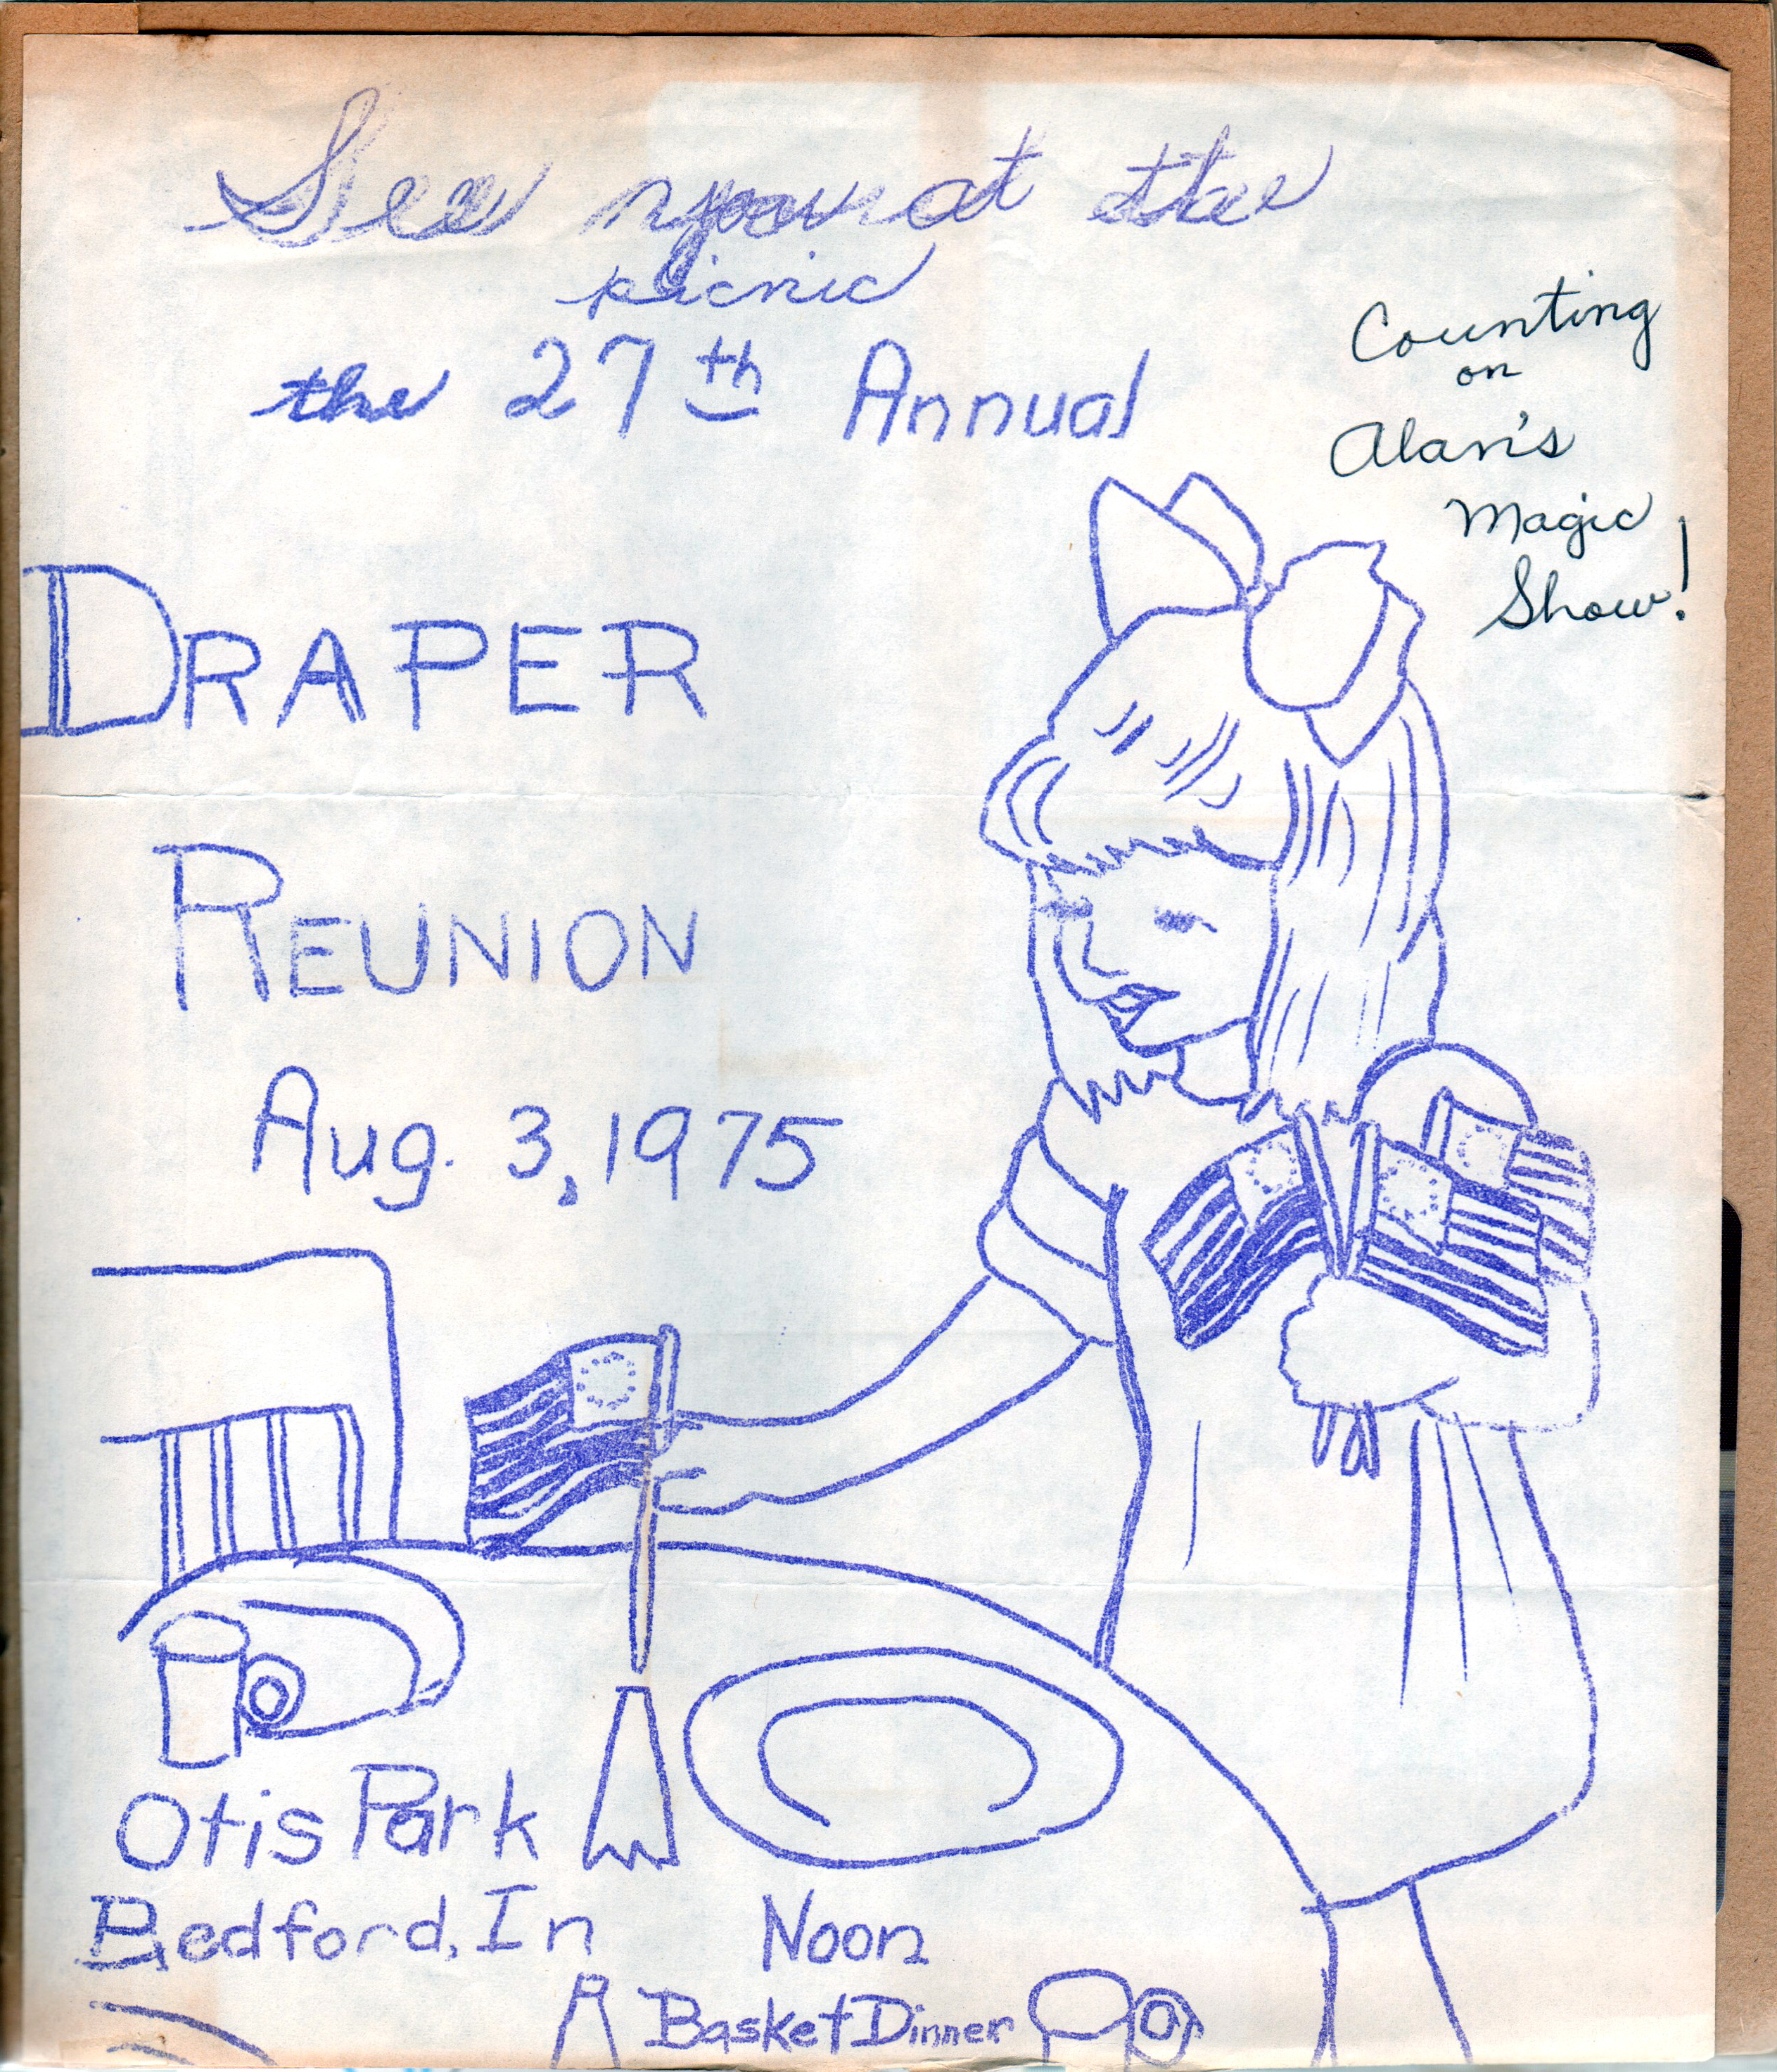 See you at the
picnic
the 27th Annual
Counting
on
Alan's
Magic
Show!
DRAPER
REUNION
Aug. 3, 1975
Otis Park
Bedford, In
Noon
Basket Dinner